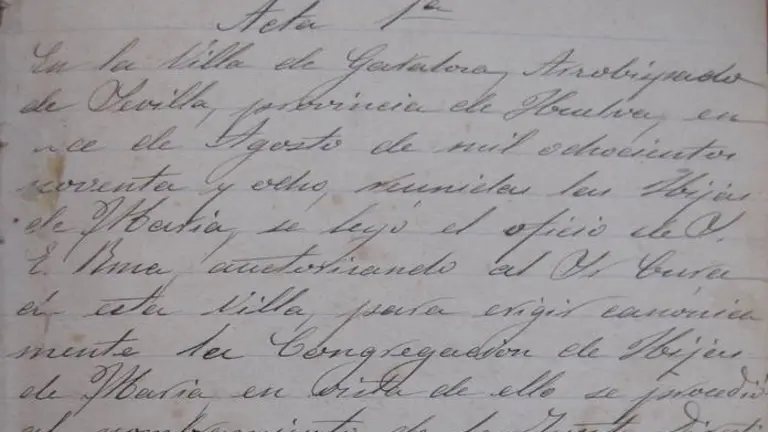 Acta 1ª
En la Villa de Galaroza, Arzobispado
de Sevilla, provincia de Huelva, en
de Agosto de mil ochocientos
noventa y ocho, reunidas las Hijas
de Maria, se leyó el oficio de S.
E. Rma, autorisando al Sr Cura
de esta Villa, para erigir canónica
mente la Congregacion de Hijas
de Maria en vista de ello se procedió
al nombramiento de la Junta